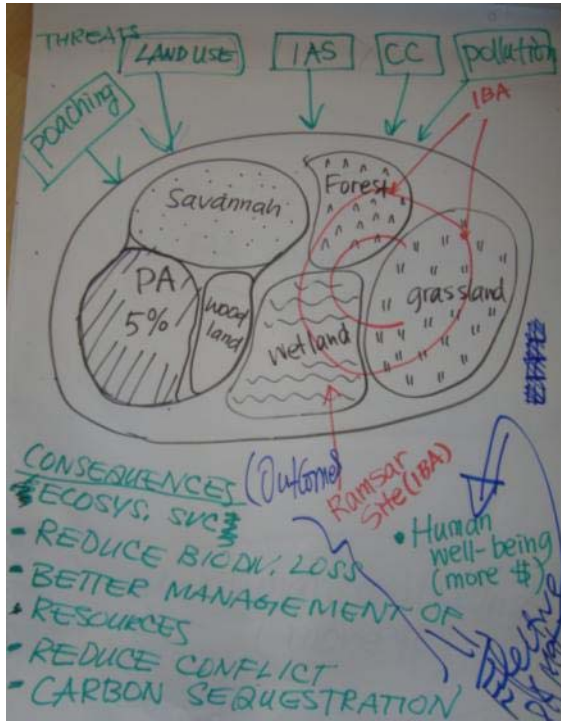 THREATS
LAND USE
IAS
CC
pollution
poaching
IBA
Savannah
Forest
PA
5%
wood
land
wetland
grassland
CONSEQUENCES (Outcome)
ECOSYS. SVC
Ramsar
Site (IBA)
- REDUCE BIODIV. LOSS
- BETTER MANAGEMENT OF
RESOURCES
- REDUCE CONFLICT
- CARBON SEQUESTRATION
• Human
well-being
(more $)